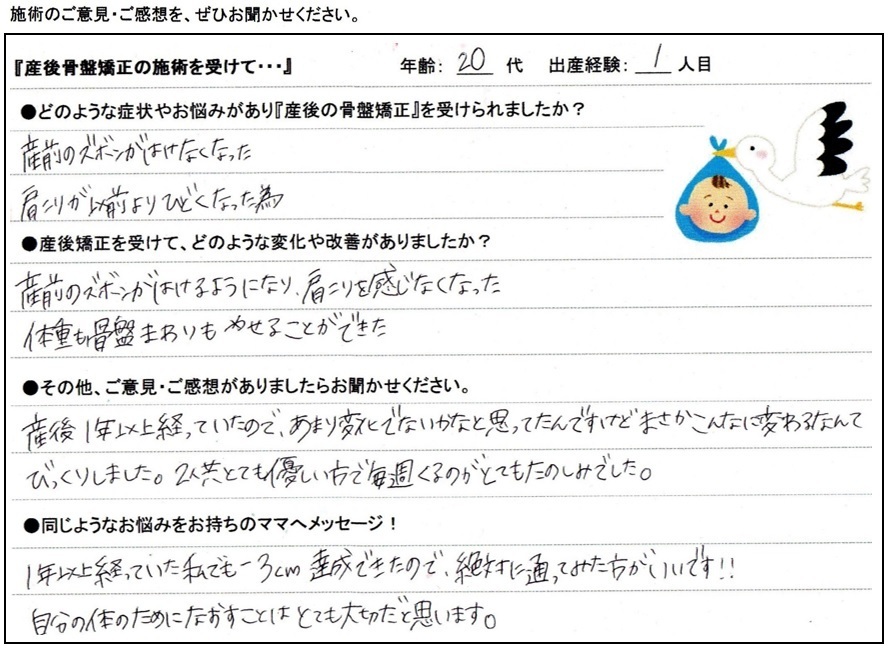 施術のご意見・ご感想を、ぜひお聞かせください。
『産後骨盤矯正の施術を受けて・・・』 年齢: 20 代 出産経験: 1 人目
●どのような症状やお悩みがあり『産後の骨盤矯正』を受けられましたか？
産前のズボンがはけなくなった
肩こりが以前よりひどくなった為
●産後矯正を受けて、どのような変化や改善がありましたか？
産前のズボンがはけるようになり、肩こりを感じなくなった
体重も骨盤まわりもやせることができた
●その他、ご意見・ご感想がありましたらお聞かせください。
産後1年以上経っていたので、あまり変化でないかなと思ってたんですけどまさかこんなに変わるなんて
びっくりしました。2人共とても優しい方で毎週くるのがとてもたのしみでした。
●同じようなお悩みをお持ちのママへメッセージ！
1年以上経っていた私でも－3cm達成できたので、絶対に通ってみた方がいいです!!
自分の体のためになおすことはとても大切だと思います。